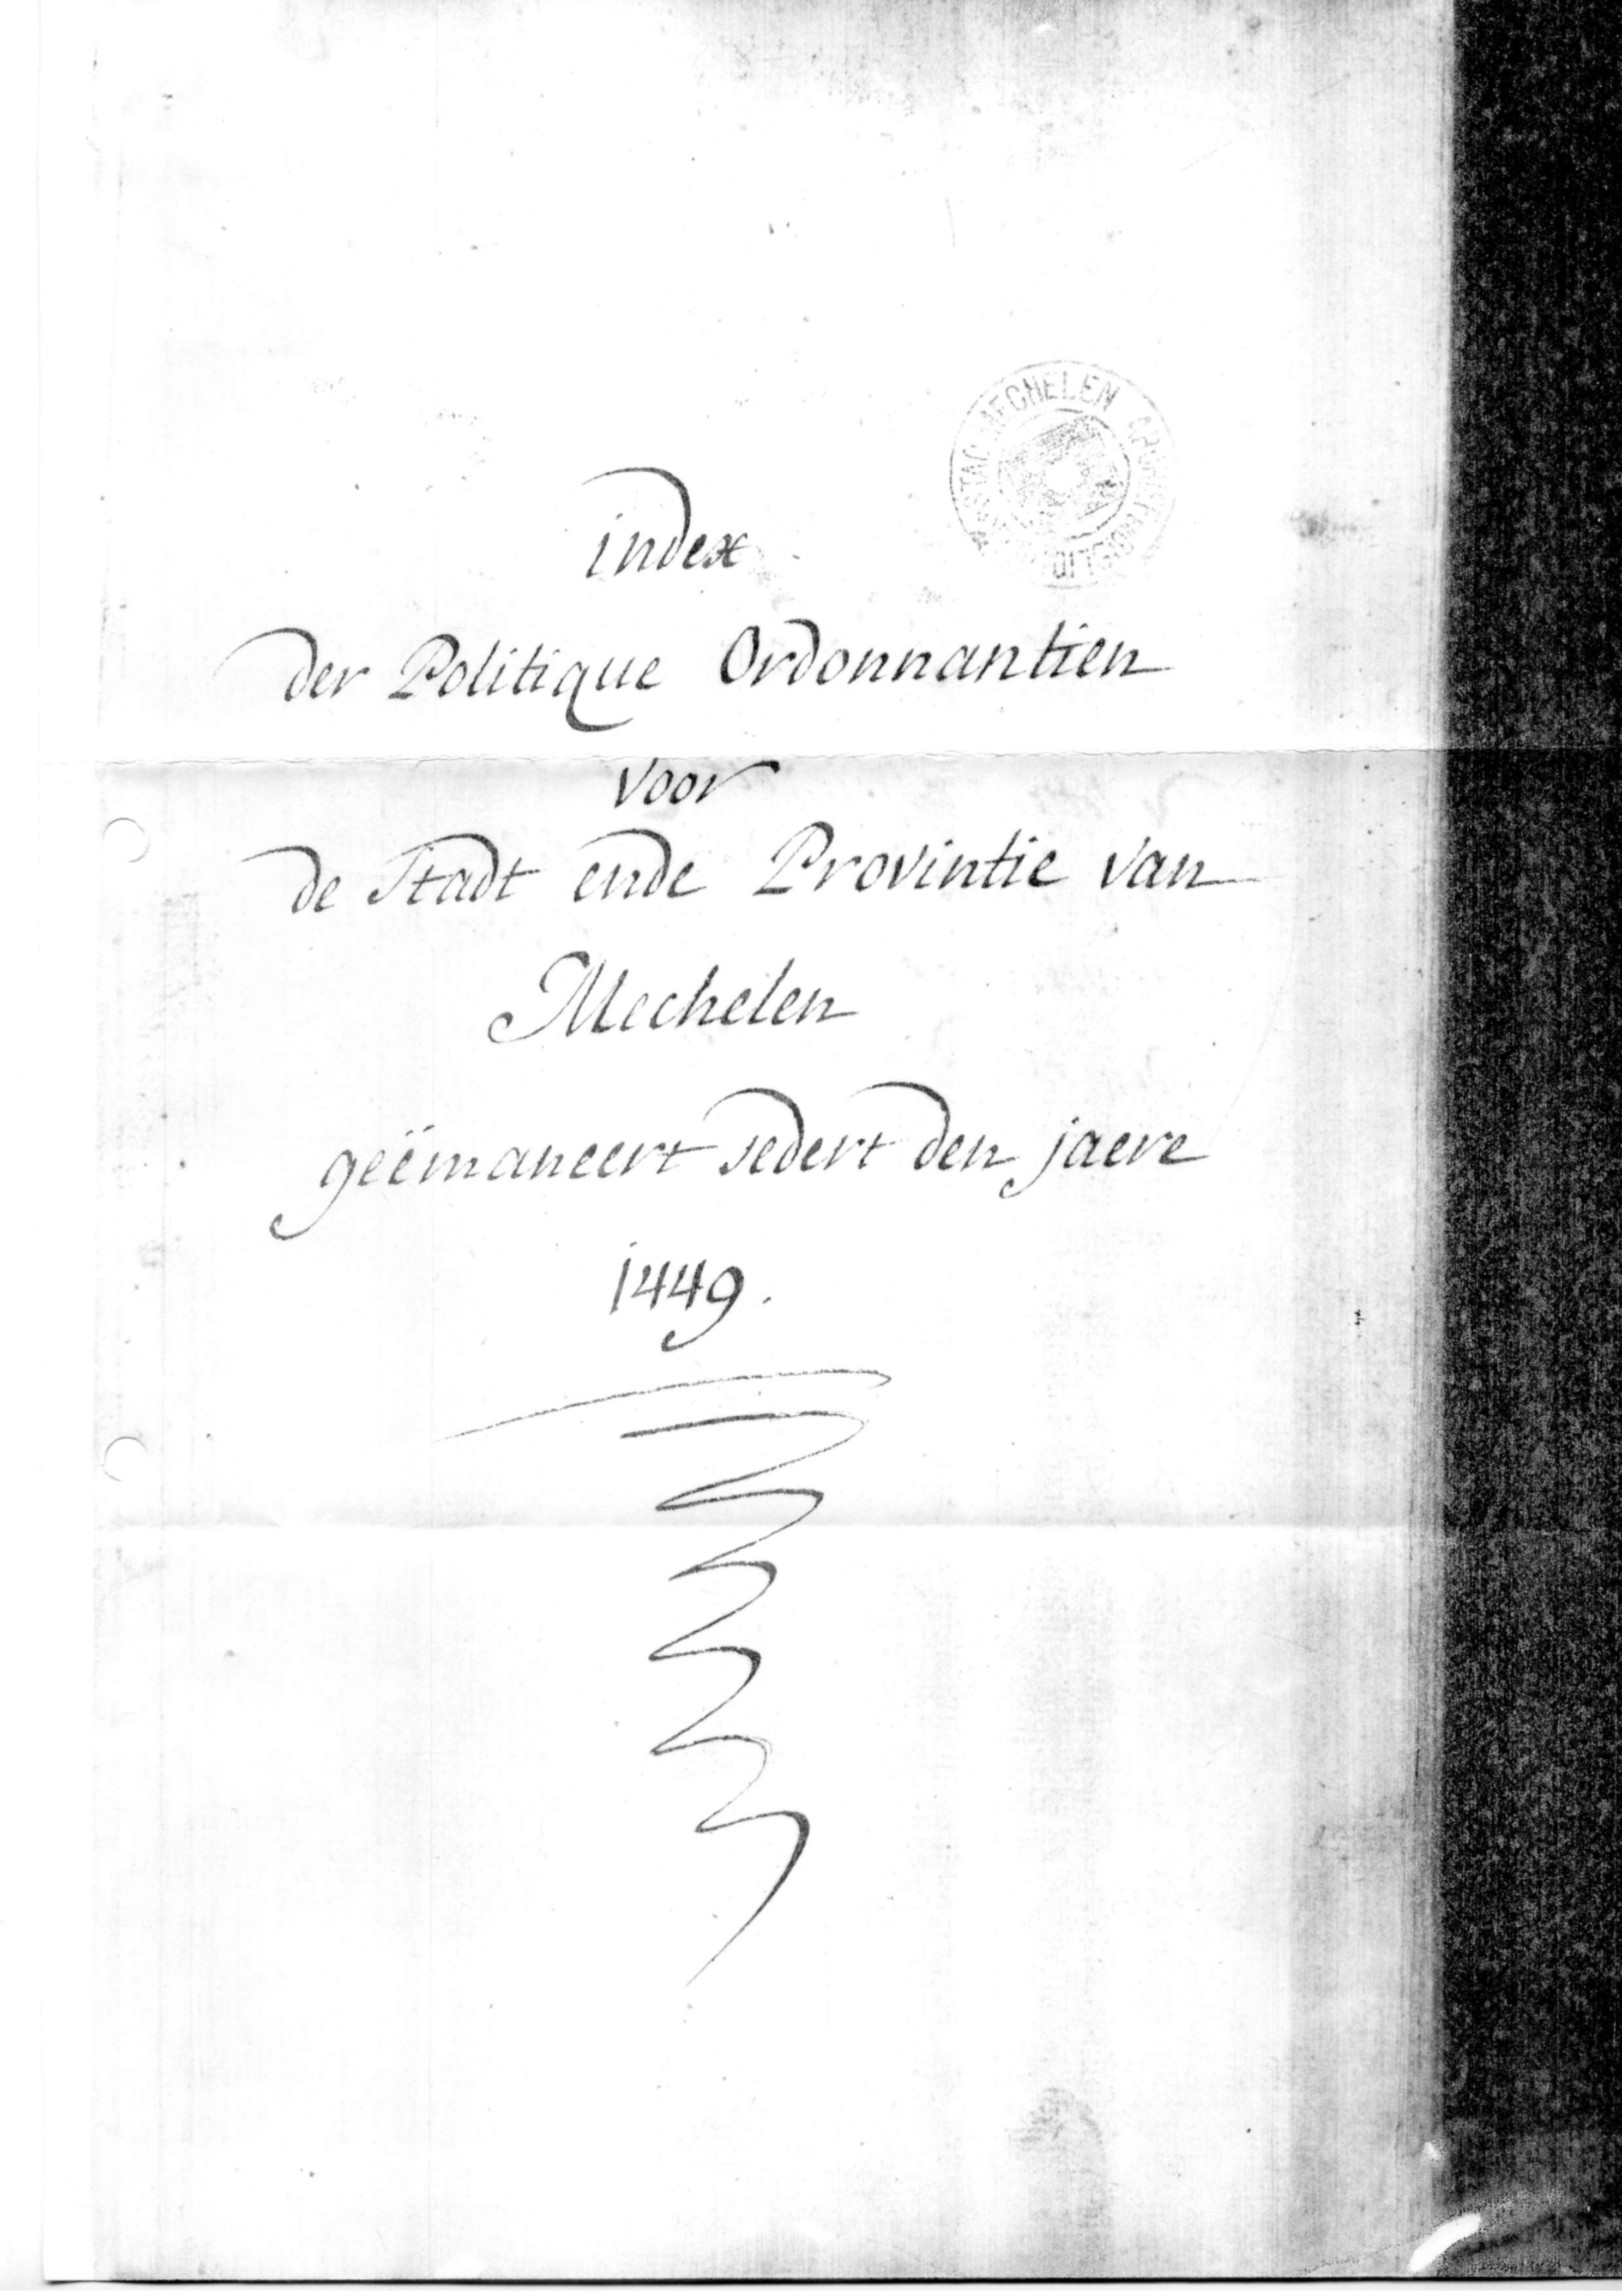 MECHELEN
index
der Politique Ordonnantien
voor
de Stadt ende Provintie van
Mechelen
geëmaneert sedert den jaere
1449.